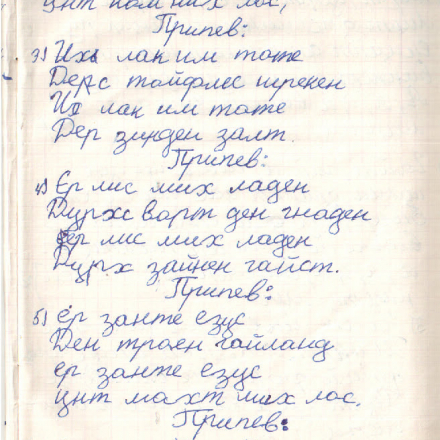 цнт ком них лос,
Припев:
3) Их лак им тоте
Дерс тойфлес шрекен
Их лак им тоте
Дер зинден залт.
Припев:
4) Ер лис мих ладен
Дурхс варт ден гнаден
Ер лис мих ладен
Дурх зайнен гайст.
Припев:
5) ер занте езус
Ден троен гайланд
ер занте езус
цнт махт мих лос.
Припев: